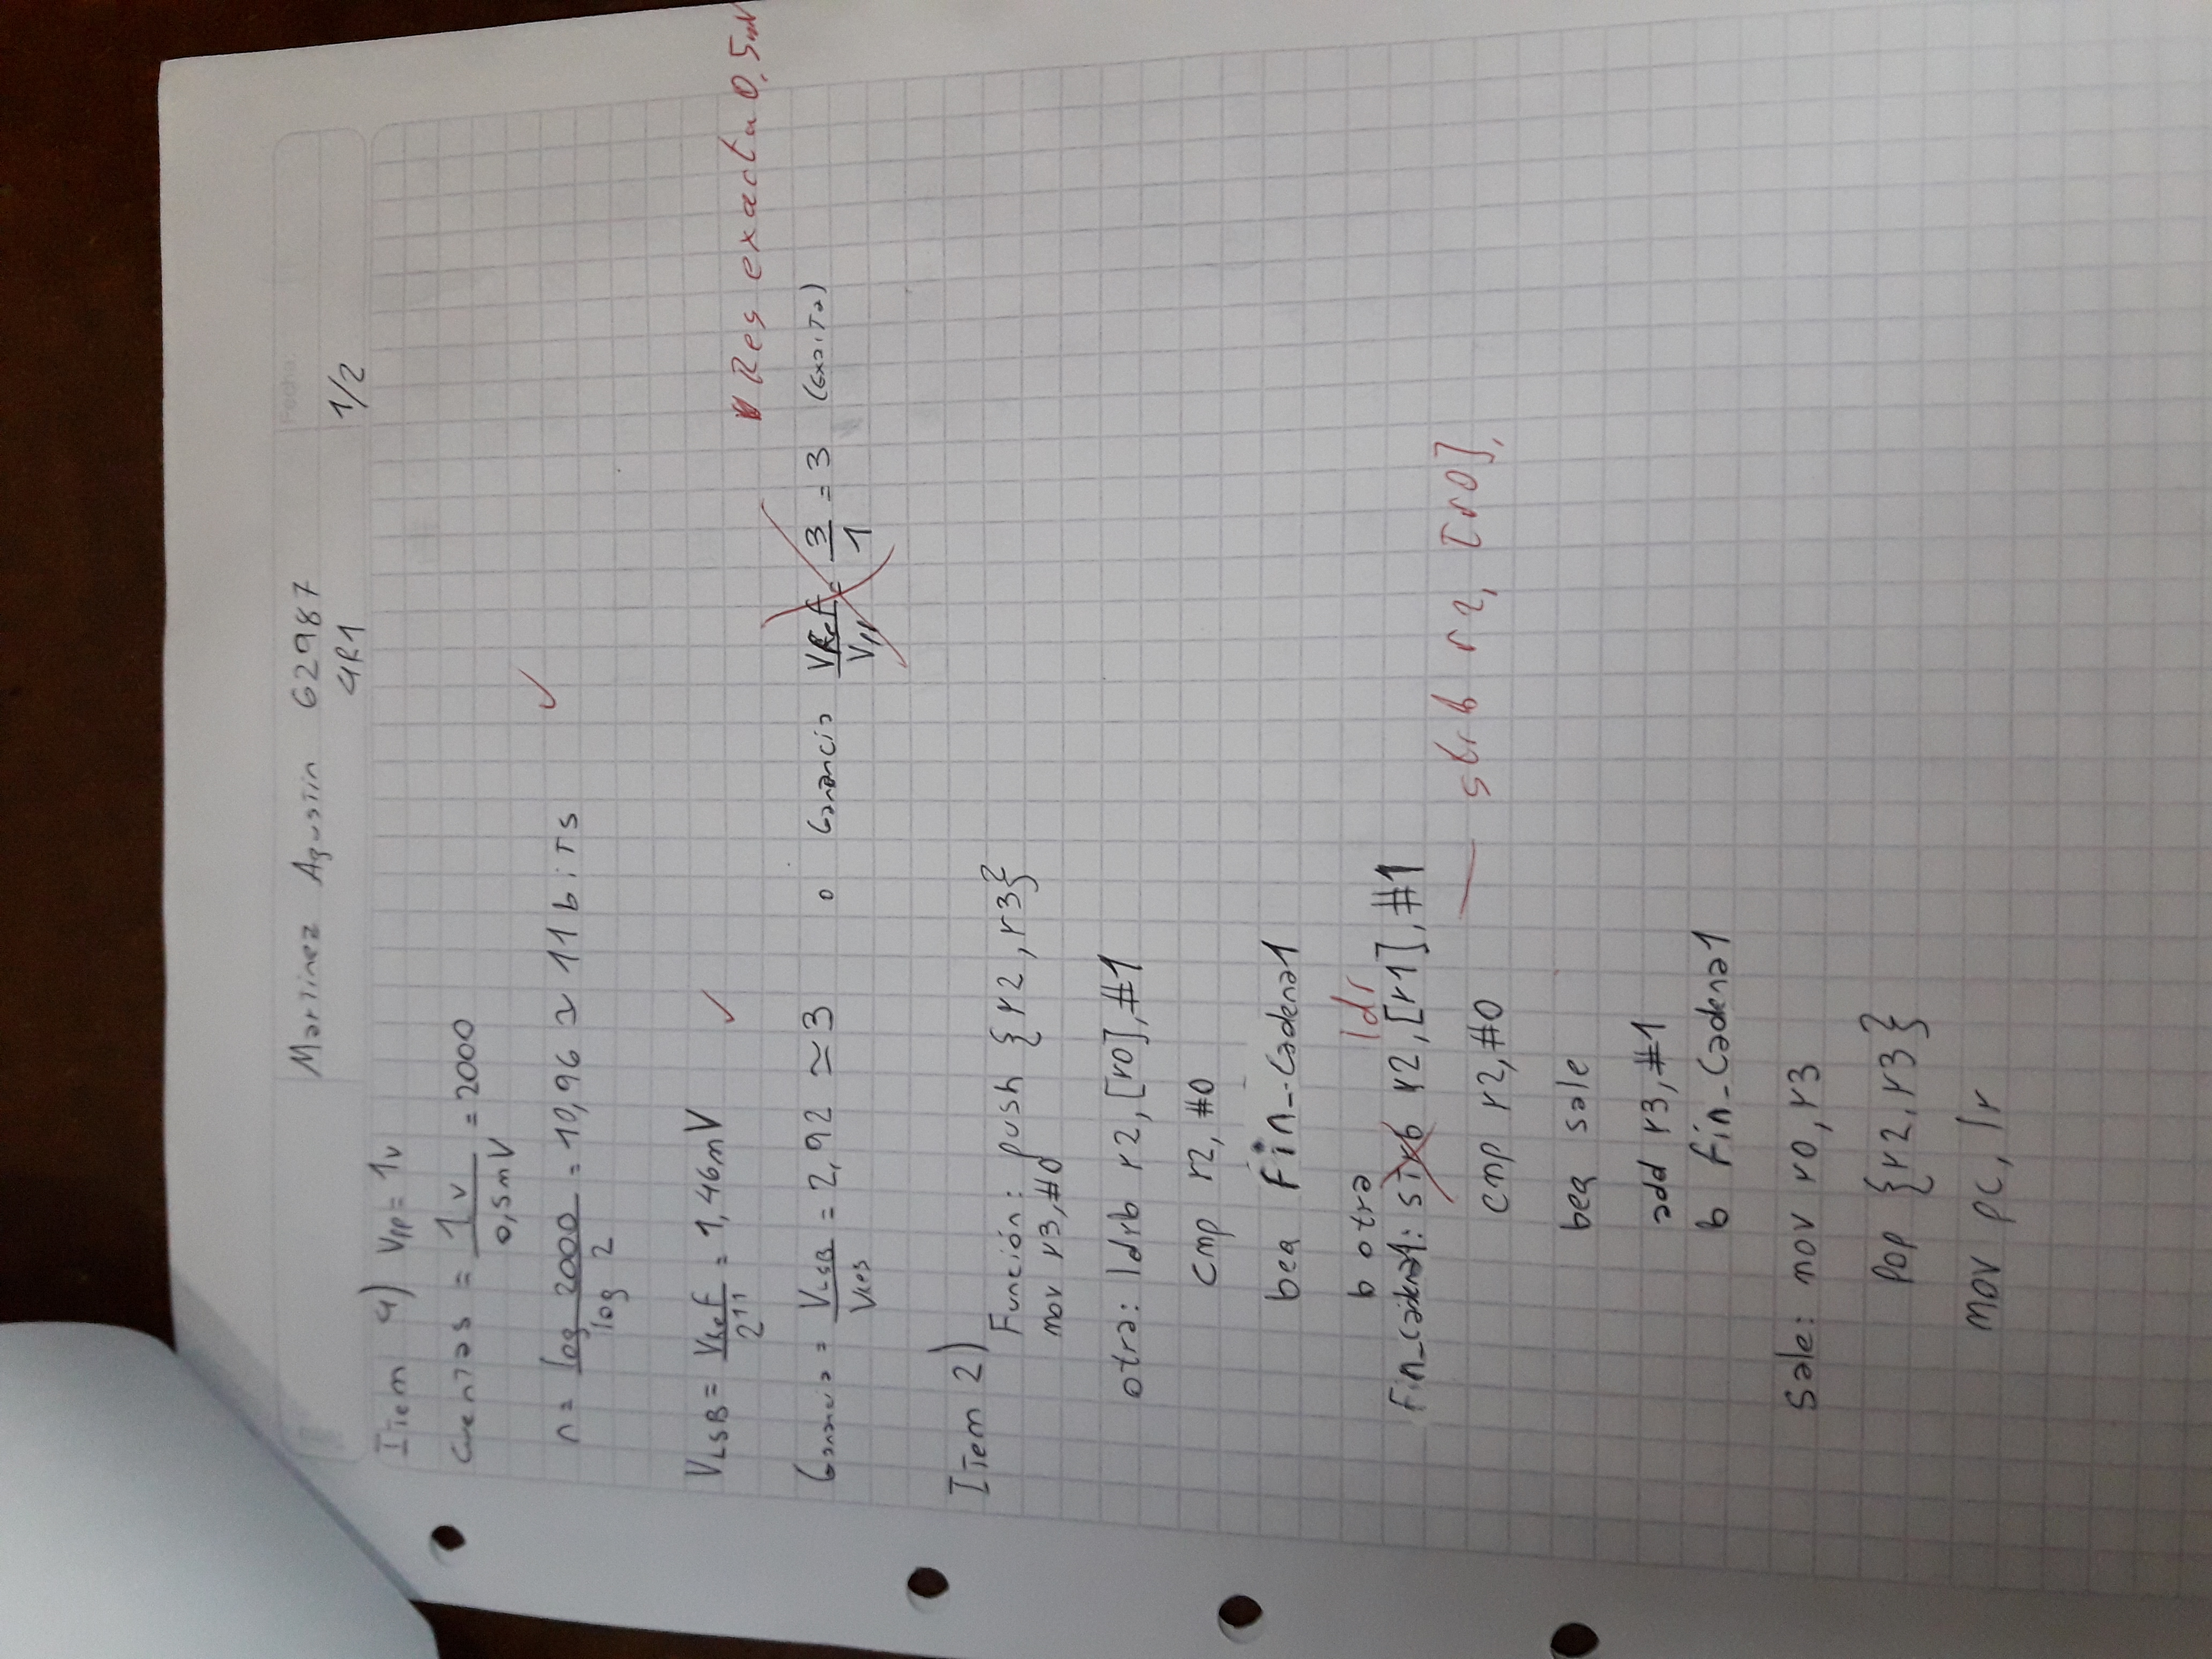 Martinez Agustin 62987
Fecha:
4R1 1/2
Item 4) Vpp = 1v
Cuentas = 1v / 0,5mV = 2000
n = log 2000 / log 2 = 10,96 ≃ 11 bits ✓
VLSB = VRef / 2^11 = 1,46mV ✓
Res exacta 0,5mV
Ganancia = VLSB / VRes = 2,92 ≃ 3 o Ganancia VRef / Vpp = 3 / 1 = 3 (Exacta)
Item 2)
Función: push {r2, r3}
mov r3, #0
otra: ldrb r2, [r0], #1
cmp r2, #0
beq Fin_Cadena1
b otra
ldr
Fin_Cadena1: strb r2, [r1], #1
— strb r2, [r0],
cmp r2, #0
beq sale
add r3, #1
b fin_Cadena1
Sale: mov r0, r3
Pop {r2, r3}
mov pc, lr